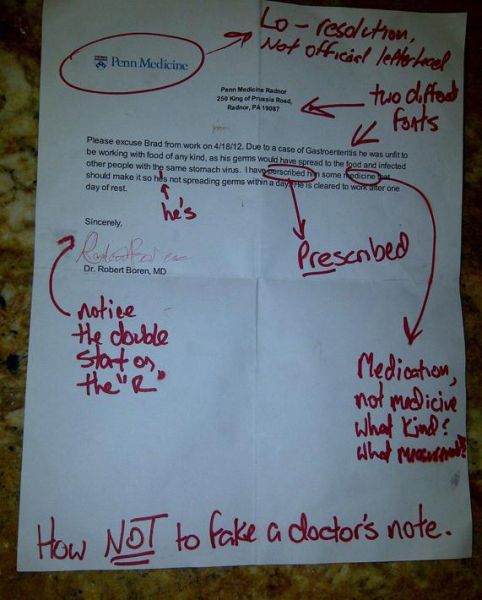 Penn Medicine
Lo-resolution,
Not official letterhead
Penn Medicine Radnor
250 King of Prussia Road,
Radnor, PA 19087
two different
fonts
Please excuse Brad from work on 4/18/12. Due to a case of Gastroenteritis he was unfit to
be working with food of any kind, as his germs would have spread to the food and infected
other people with the same stomach virus. I have perscribed him some medicine that
should make it so hes not spreading germs within a day. He is cleared to work after one
day of rest.
he's
Prescribed
Sincerely,
Dr. Robert Boren, MD
notice
the double
start on
the "R"
Medication,
not medicine
What kind?
What measurement?
How NOT to fake a doctor's note.